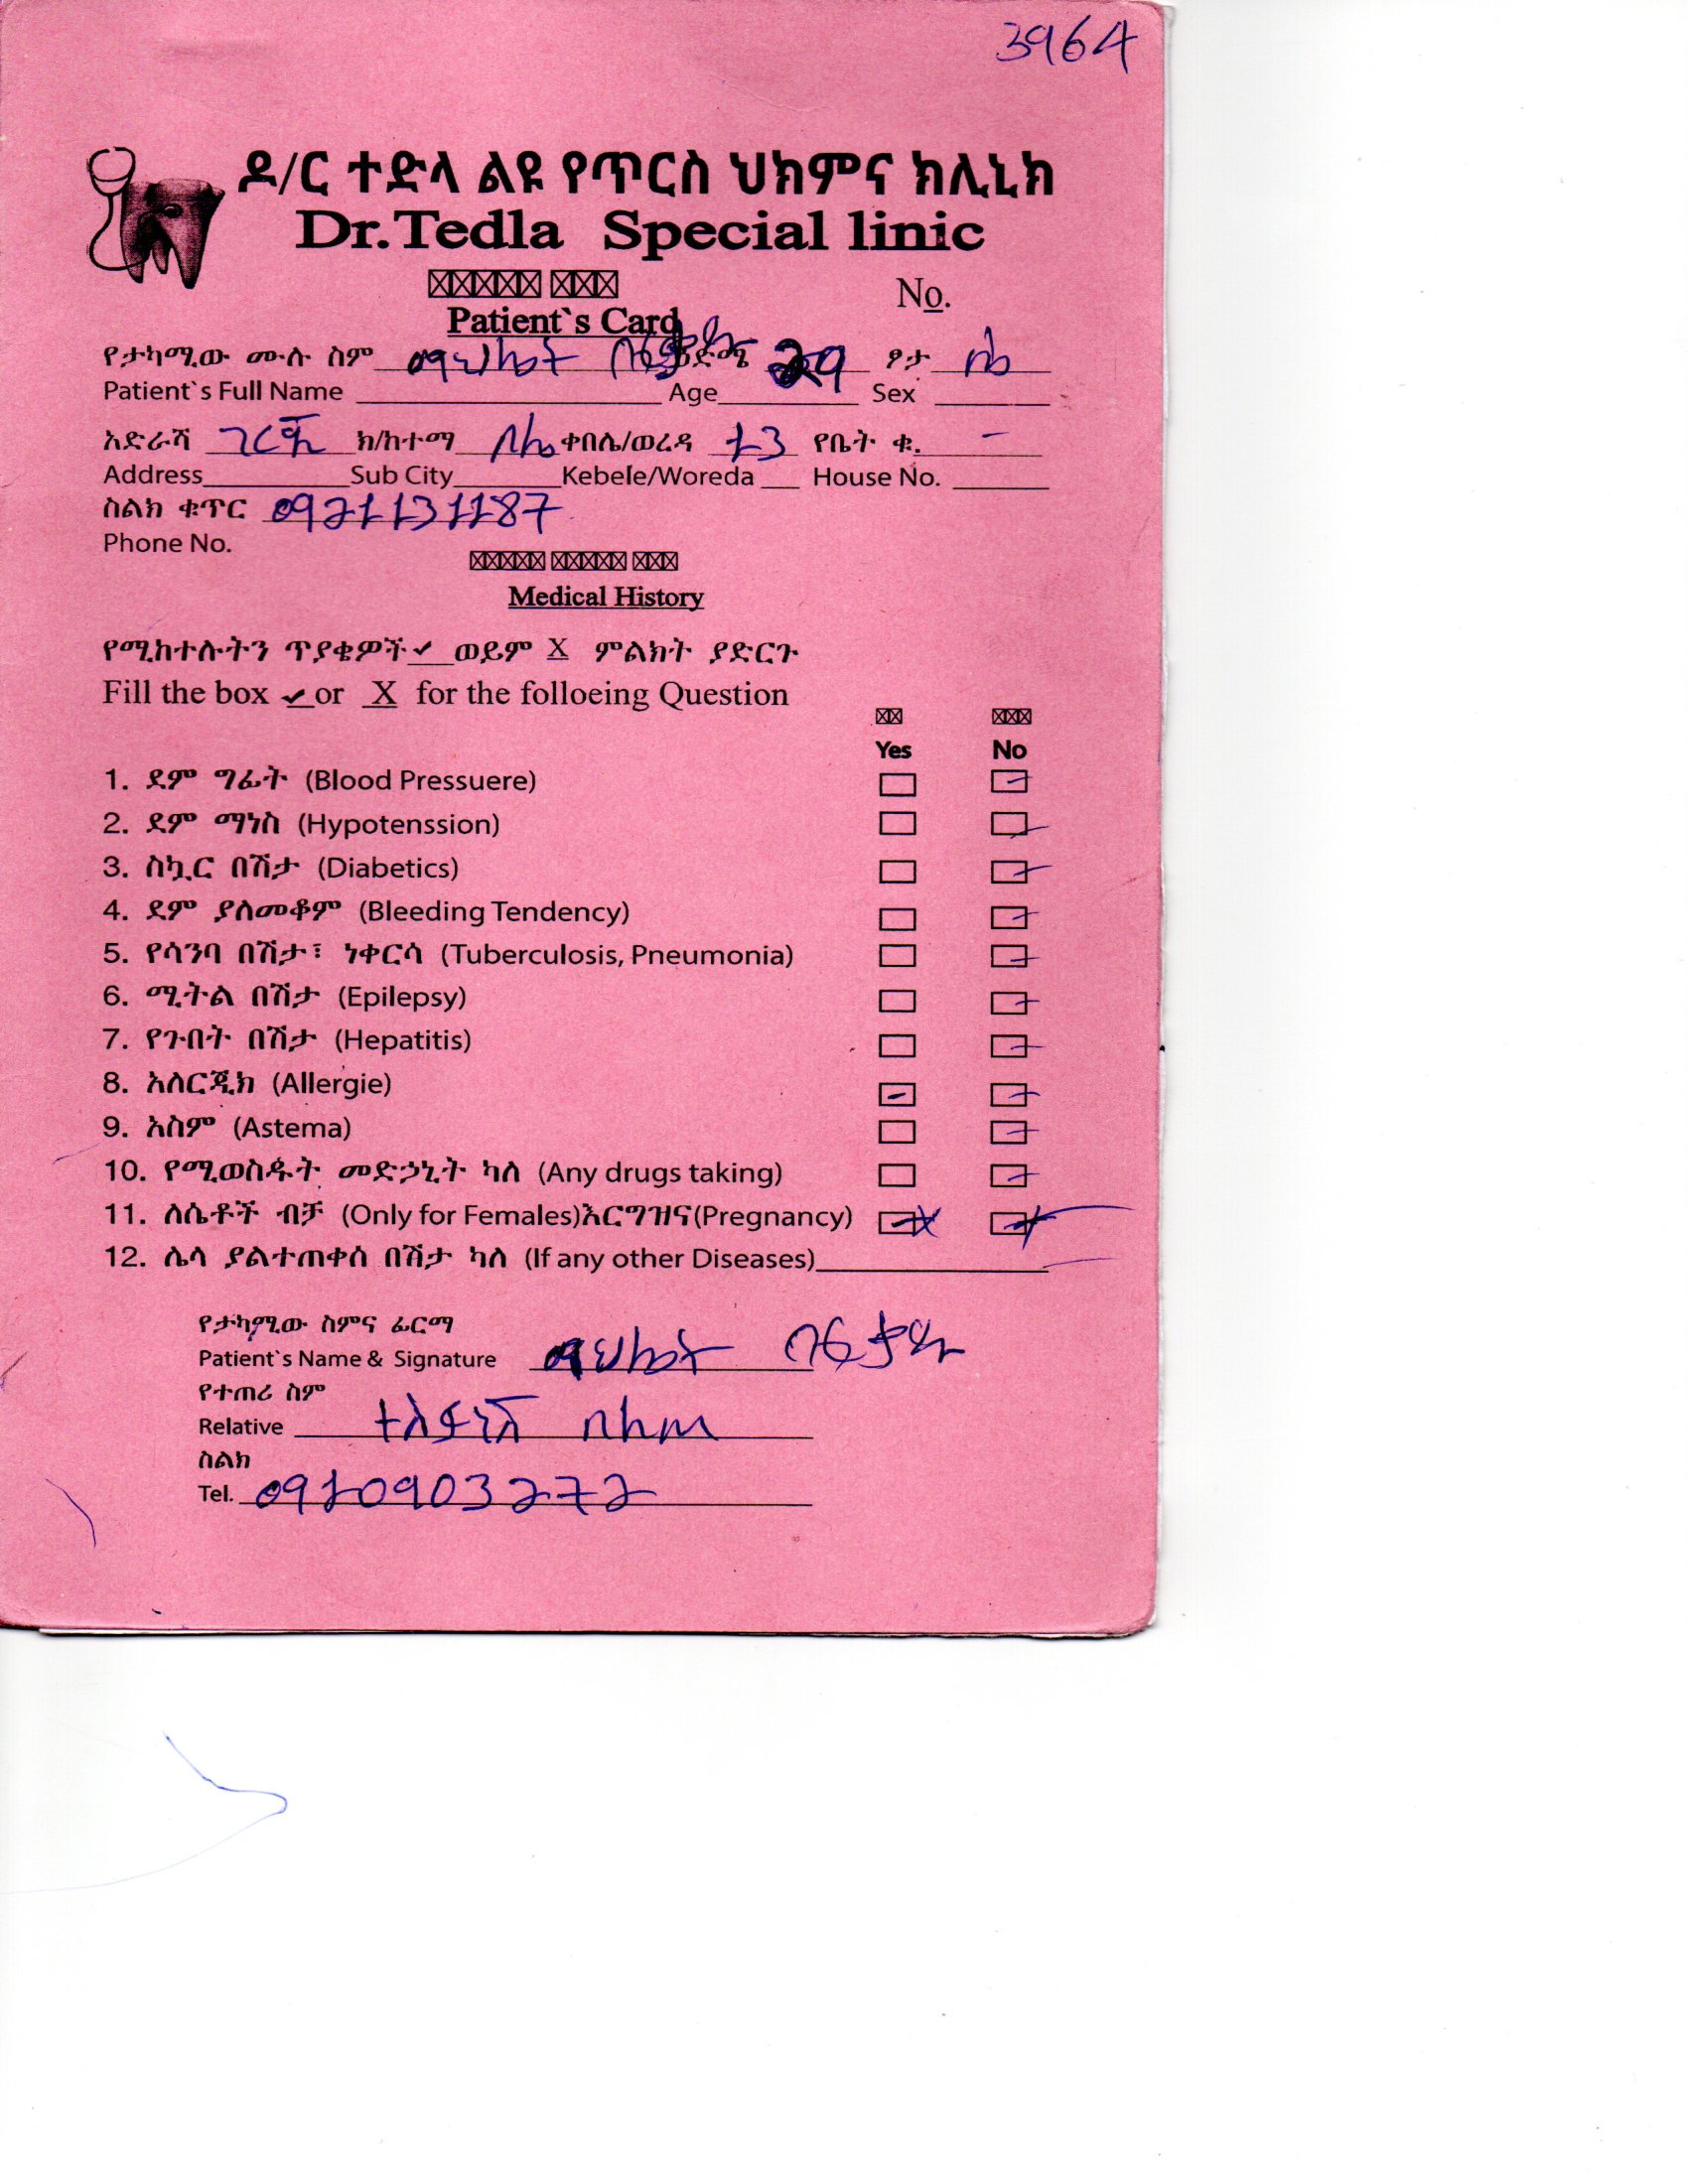 3964
ዶ/ር ተድላ ልዩ የጥርስ ህክምና ክሊኒክ
Dr.Tedla Special linic
No.
Patient`s Card
የታካሚው ሙሉ ስም ማህሌት ዕድሜ 29 ፆታ ሴ
Patient`s Full Name Age Sex
አድራሻ ገርጂ ክ/ከተማ ቦሌ ቀበሌ/ወረዳ 13 የቤት ቁ. -
Address Sub City Kebele/Woreda House No.
ስልክ ቁጥር 0921131187
Phone No.
Medical History
የሚከተሉትን ጥያቄዎች ✓ ወይም X ምልክት ያድርጉ
Fill the box ✓ or X for the folloeing Question
Yes No
1. ደም ግፊት (Blood Pressuere)
2. ደም ማነስ (Hypotenssion)
3. ስኳር በሽታ (Diabetics)
4. ደም ያለመቆም (Bleeding Tendency)
5. የሳንባ በሽታ፣ ነቀርሳ (Tuberculosis, Pneumonia)
6. ሚትል በሽታ (Epilepsy)
7. የጉበት በሽታ (Hepatitis)
8. አለርጂክ (Allergie)
9. አስም (Astema)
10. የሚወስዱት መድኃኒት ካለ (Any drugs taking)
11. ለሴቶች ብቻ (Only for Females)እርግዝና(Pregnancy)
12. ሌላ ያልተጠቀሰ በሽታ ካለ (If any other Diseases)
የታካሚው ስምና ፊርማ
Patient`s Name & Signature ማህሌት
የተጠሪ ስም
Relative ተስፋነሽ
ስልክ
Tel. 0910903272